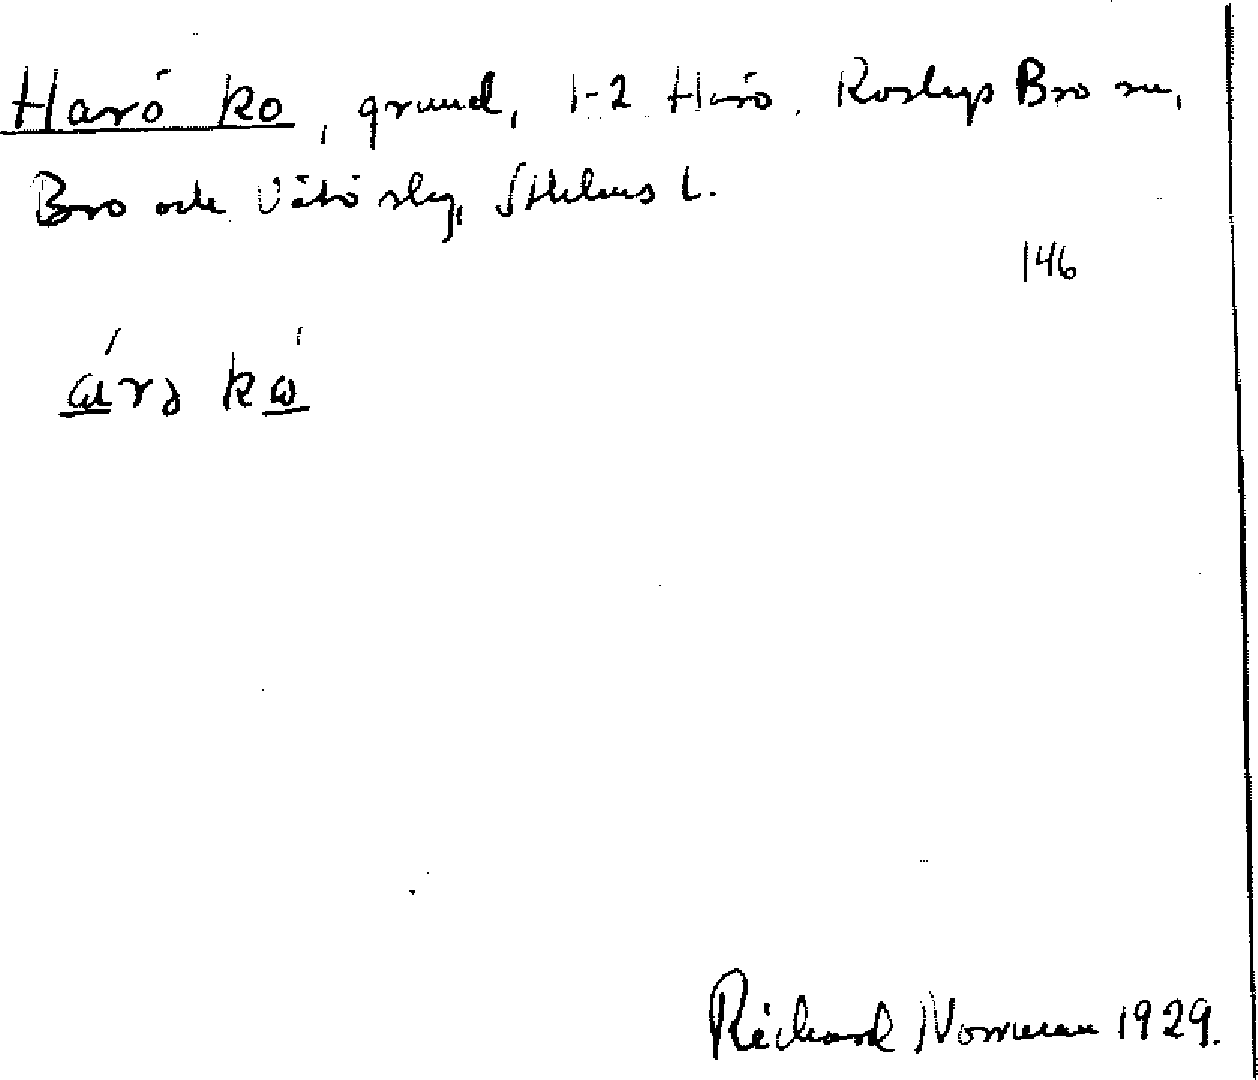 Harö ko, grund, 1-2 Harö. Roslags Bro sn,
Bro och Vätö slg, Sthlms l.
146
kω
Richard Norrman 1929.